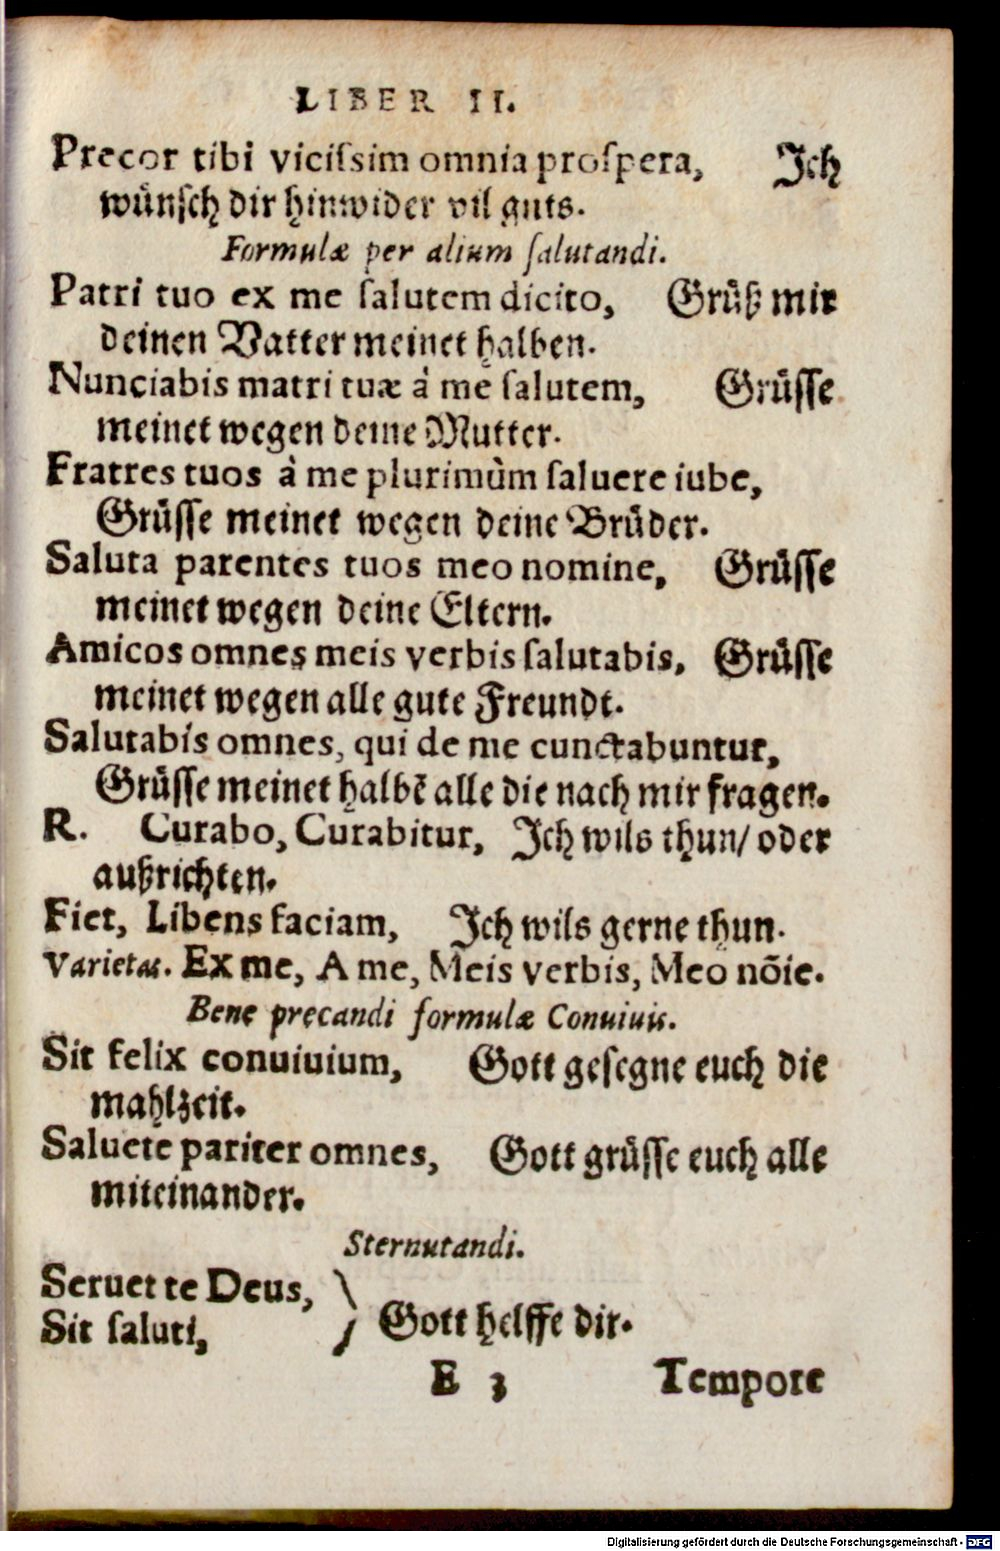 LIBER II.
Precor tibi viciſsim omnia proſpera, Ich
wuͤnſch dir hinwider vil guts.
Formulæ per alium ſalutandi.
Patri tuo ex me ſalutem dicito, Gruͤß mir
deinen Vatter meinet halben.
Nunciabis matri tuæ à me ſalutem, Gruͤſſe
meinet wegen deine Mutter.
Fratres tuos à me plurimùm ſaluere iube,
Gruͤſſe meinet wegen deine Bruͤder.
Saluta parentes tuos meo nomine, Gruͤſſe
meinet wegen deine Eltern.
Amicos omnes meis verbis ſalutabis, Gruͤſſe
meinet wegen alle gute Freundt.
Salutabis omnes, qui de me cunctabuntur,
Gruͤſſe meinet halbẽ alle die nach mir fragen.
R. Curabo, Curabitur, Ich wils thun/ oder
außrichten.
Fiet, Libens faciam, Ich wils gerne thun.
Varietas. Ex me, A me, Meis verbis, Meo nõie.
Bene precandi formulæ Conuiuis.
Sit felix conuiuium, Gott geſegne euch die
mahlzeit.
Saluete pariter omnes, Gott gruͤſſe euch alle
miteinander.
Sternutandi.
Seruet te Deus,
Sit ſaluti, Gott helffe dir.
E 3 Tempore
Digitalisierung gefördert durch die Deutsche Forschungsgemeinschaft - DFG